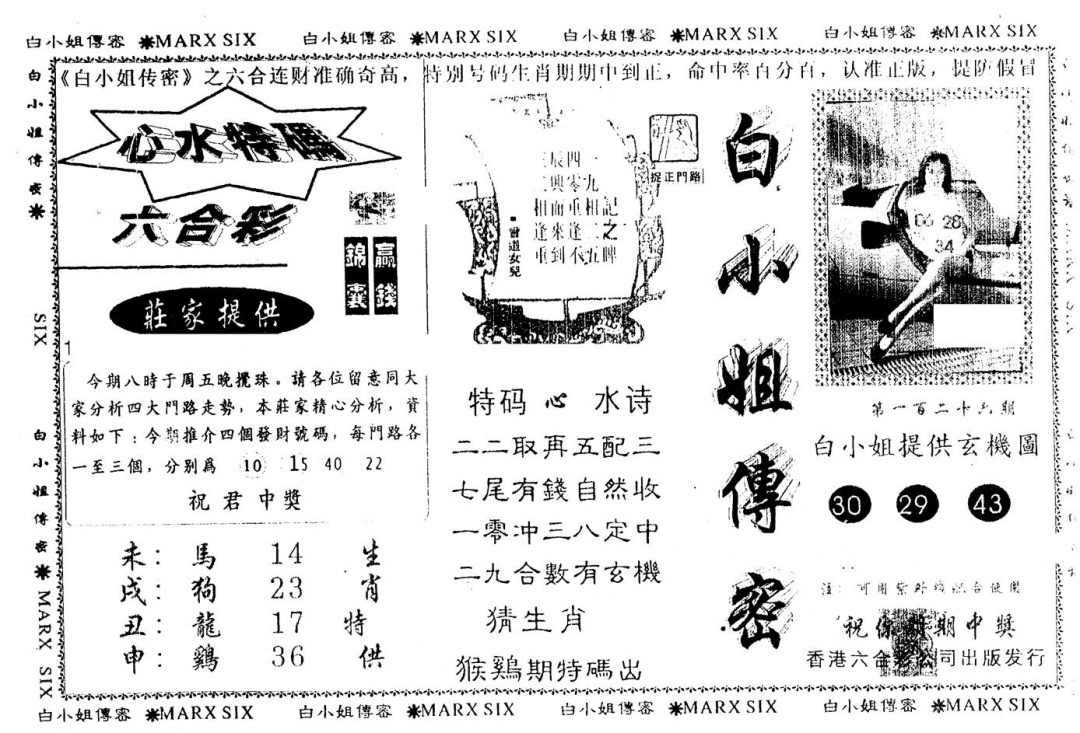 白小姐傳密 ✱MARX SIX 白小姐傳密 ✱MARX SIX 白小姐傳密 ✱MARX SIX 白小姐傳密 ✱MARX SIX
《白小姐传密》之六合连财准确奇高，特别号码生肖期期中到正，命中率百分百，认准正版，提防假冒
白小姐傳密✱
SIX
白小姐傳密✱MARX SIX
心水特碼
六合彩
錦囊
贏錢
莊家提供
1
今期八時于周五晚攪珠。請各位留意同大
家分析四大門路走勢，本莊家精心分析，資
料如下：今期推介四個發財號碼，每門路各
一至三個，分别爲 10 15 40 22
祝君中獎
未：馬 14 生
戌：狗 23 肖
丑：龍 17 特
申：鷄 36 供
三辰四一
二興零九
相而重相記
逢來逢二之
重到不五脾
■曾道女兒
捉正門路
特码心水诗
二二取再五配三
七尾有錢自然收
一零冲三八定中
二九合數有玄機
猜生肖
猴鷄期特碼出
白小姐傳密
06 28
34
白小姐提供玄機圖
30 29 43
注：可用紫外线配合使用
祝你期中獎
香港六合彩公司出版发行
白小姐傳密 ✱MARX SIX 白小姐傳密 ✱MARX SIX 白小姐傳密 ✱MARX SIX 白小姐傳密 ✱MARX SIX